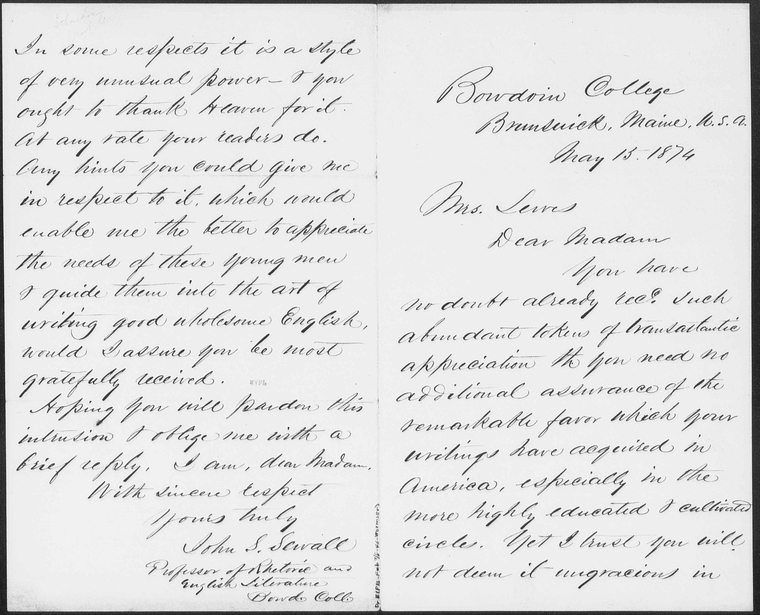 Bowdoin College
Brunswick, Maine, U.S.A.
May 15. 1874
Mrs. Lewes
Dear Madam
You have
no doubt already recd. such
abundant tokens of transatlantic
appreciation th you need no
additional assurance of the
remarkable favor which your
writings have acquired in
America, especially in the
more highly educated & cultivated
circles. Yet I trust you will
not deem it ungracious in
In some respects it is a style
of very unusual power – & you
ought to thank Heaven for it.
At any rate your readers do.
Any hints you could give me
in respect to it, which would
enable me the better to appreciate
the needs of these young men
& guide them into the art of
writing good wholesome English,
would I assure you be most
gratefully received.
Hoping you will pardon this
intrusion & oblige me with a
brief reply, I am, dear Madam,
With sincere respect
Yours truly
John S. Sewall
Professor of Rhetoric and
English Literature
Bowd. Coll.